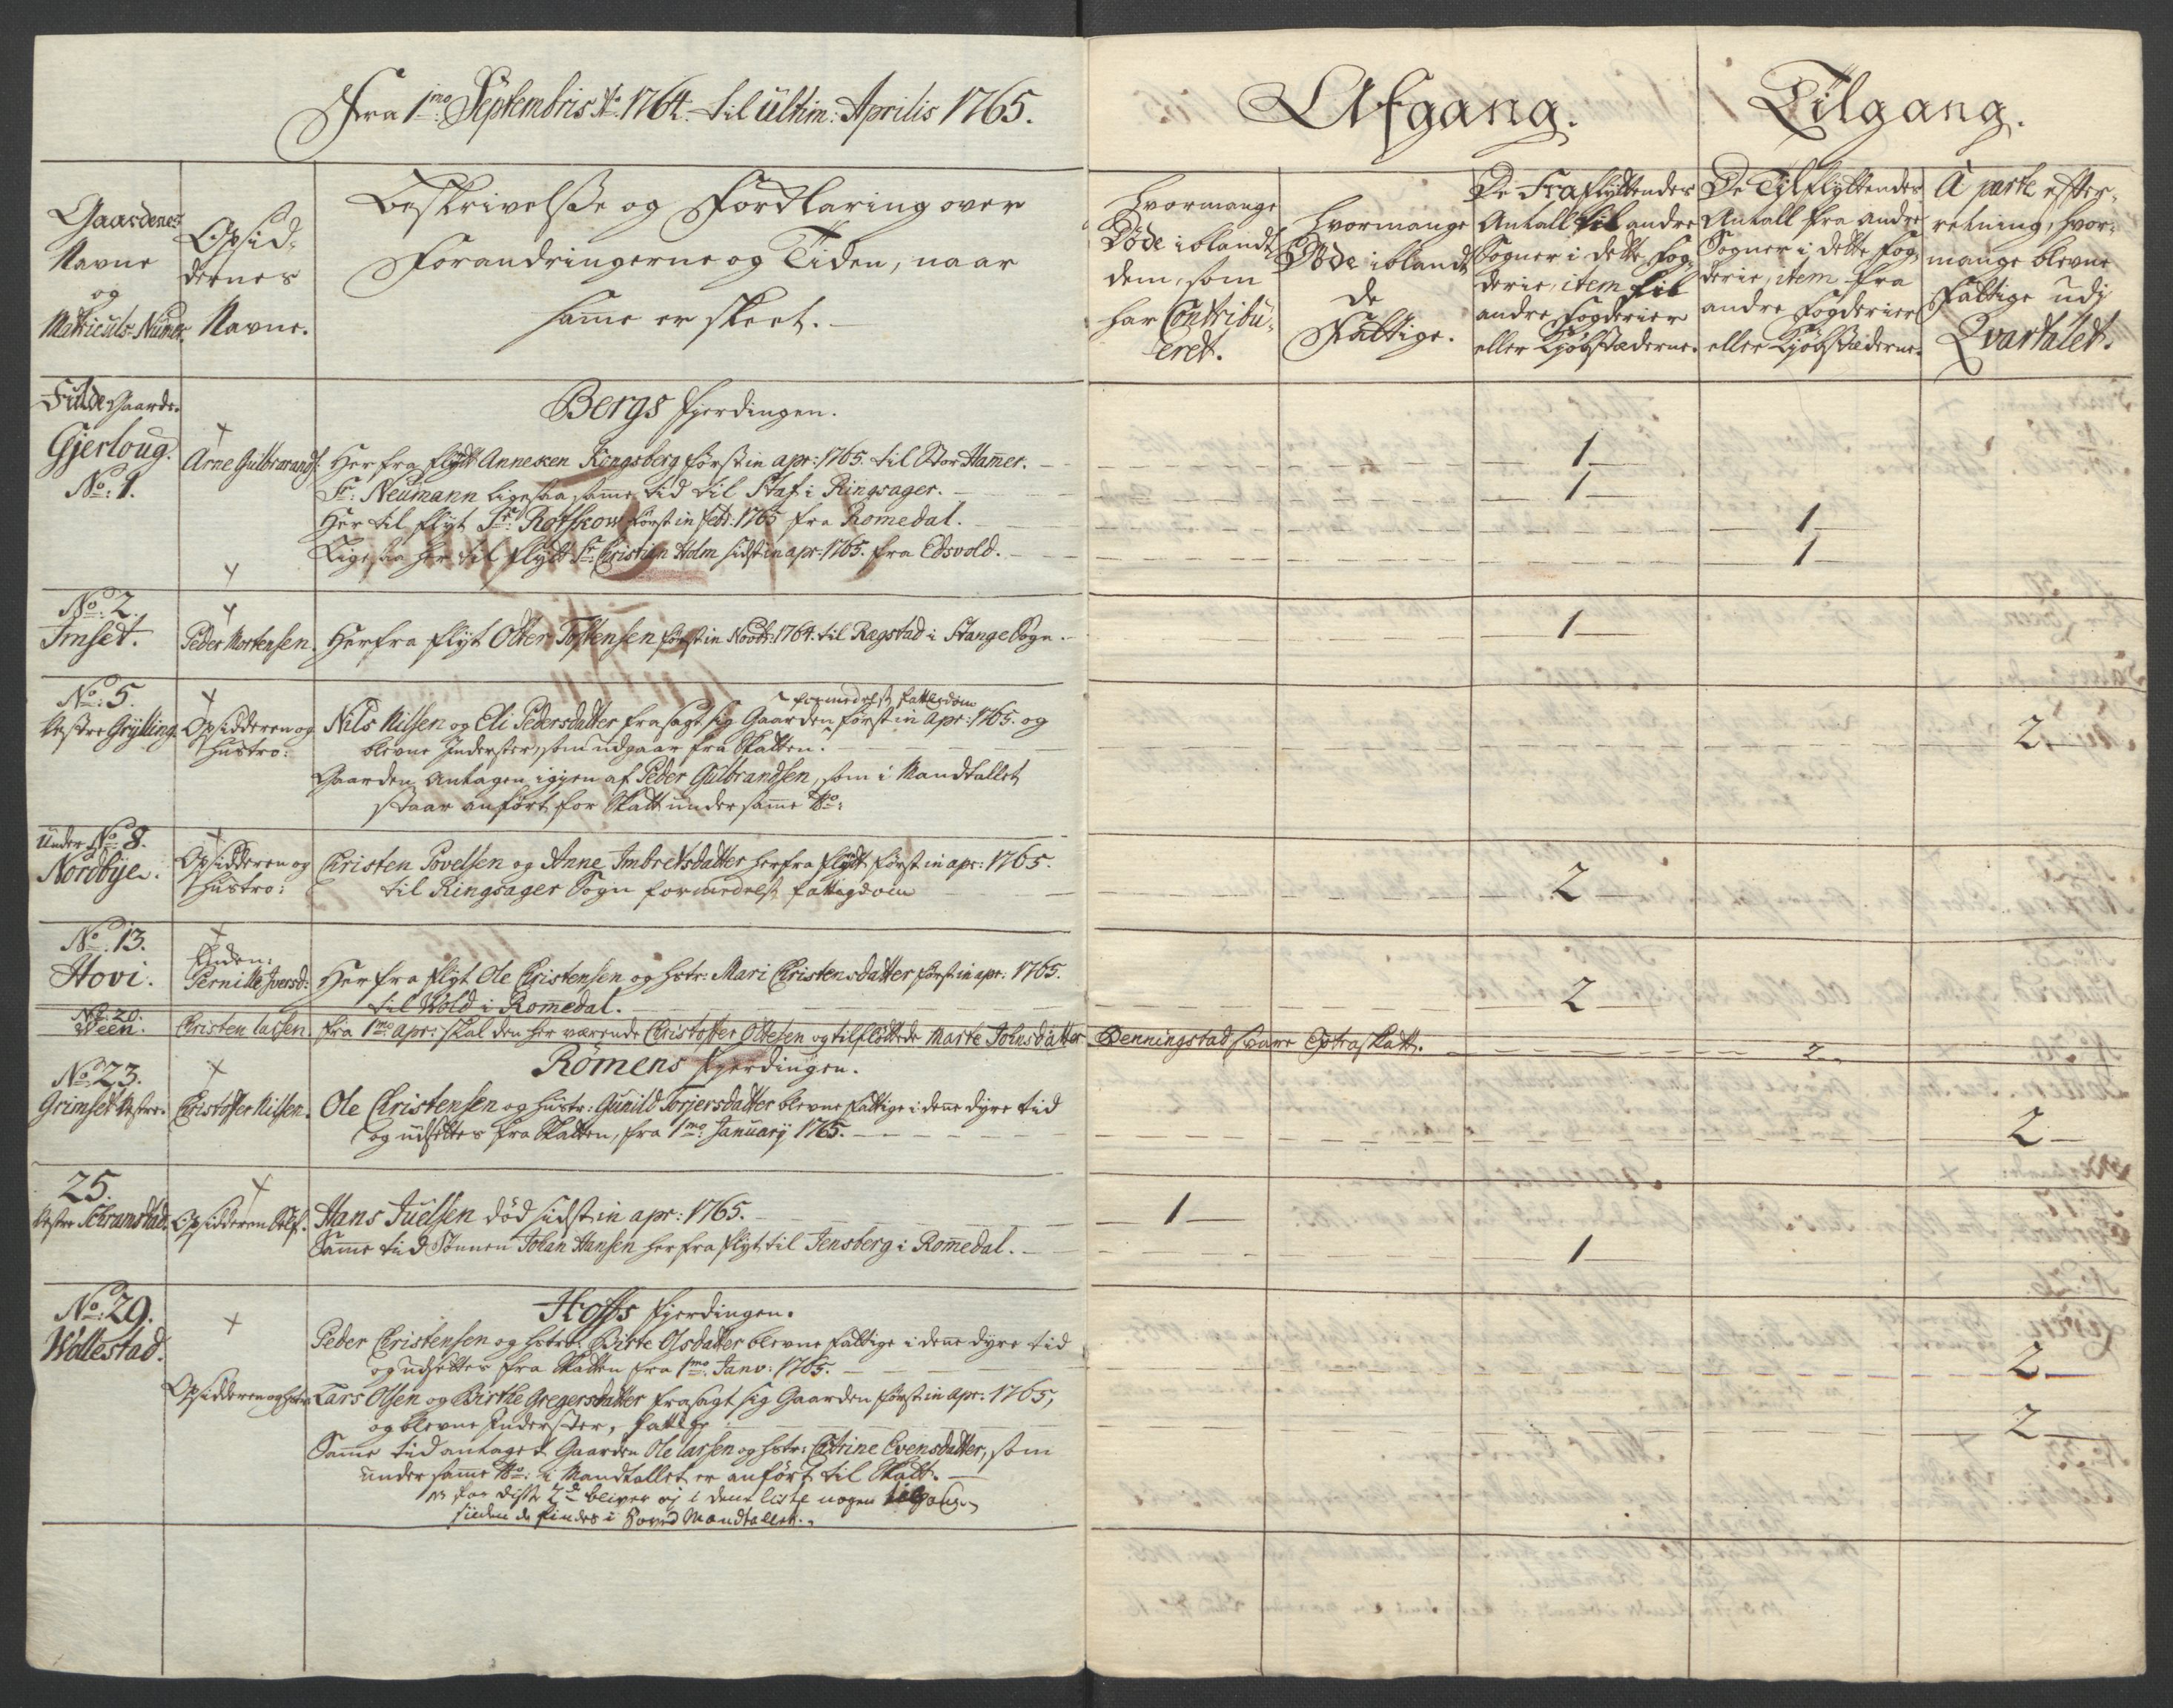 Fra 1mo Septembris Ao 1764. til ultim: Aprilis 1765.
Gaardenes Navne og Matriculs-Numer.
Opsid-
dernes
Navne.
Beskrivelsse og Forklaring over
Forandringerne og Tiden, naar
samme er skeet.
Afgang.
Tilgang.
Hvormange
Døde iblandt
dem, som
har Contribu-
eret.
Hvormange
Døde iblandt
de
Fattige.
De Fraflyttendes
Antall til andre
Sogner i dette Fog-
derie, item til
andre Fogderier
eller Kjøbstæderne.
De Tilflyttendes
Antall fra andre
Sogner i dette Fog-
derie, item fra
andre Fogderier
eller Kjøbstæderne.
A parte efter-
retning, hvor-
mange blevne
Fattige udj
Qvartalet.
Fulde Gaarde.
Bergs Fjerdingen.
Gjerloug.
No: 1.
Arne Gulbrands:
Herfra flydt Annesken Kongsberg først in apr: 1765. til Stor Hamer. 1
Sr: Neumann ligesaa samme tid til Staf i Ringsager. 1
Her til flyt Sr: Rotskow først in Febr: 1765 fra Romedal. 1
Ligesaa her til flytt Sr: Christian Holm sidst in apr: 1765. fra Edsvold. 1
No: 2.
Imset.
Peder Mortensen.
Herfra flyt Oder Tostensen først in Novbr: 1764. til Ragstad i Stange Sogn. 1
No: 5.
Vestre Grylling
Opsidderen og
Hustro:
formedelst fattigdom
Nils Nilsen og Eli Pedersdatter frasagt sig Gaarden først in apr: 1765. og
blevne Inderster, som udgaar fra Skatten. 2
Gaarden Antagen igjen af Peder Gulbrandsen, som i Mandtallet
staar anført for Skatt under samme No:
Under No: 8.
Nordbye.
Opsidderen og
Hustro:
Christen Povelsen og Anne Imbretsdatter herfra flydt først in apr: 1765.
til Ringsager Sogn formedelst fattigdom 2
No: 13.
Hovi.
Enken:
Pernille Iversd:
Herfra flyt Ole Christensen og Hstr: Mari Christensdatter først in apr: 1765.
til Wold i Romedal. 2
No: 20.
Ween.
Christen Larsen.
fra 1mo apr: skal den her værende Christoffer Ottesen og tilfløttede Marte Johnsdatter Denningstad svare Extraskatt. 2
Rømens Fjerdingen.
No: 23.
Grimset Vestre.
Christoffer Nilsen.
Ole Christensen og Hustr: Gunild Torjersdatter blevne fattige i denne dyre tid
og udsettes fra Skatten, fra 1mo January 1765. 2
25.
Vestre Schramstad.
Opsidderen Self.
Hans Juelsen død sidst in apr: 1765. 1
Samme tid Sønnen Johan Hansen herfra flyt til Jensberg i Romedal. 1
Hoffs Fjerdingen.
No: 29.
Wollestad.
Peder Christensen og Hstr: Birte Olsdatter blevne fattige i denne dyre tid
og udsettes fra Skatten fra 1mo Janv: 1765. 2
Opsidderen og Hustro
Lars Olsen og Birthe Gregersdatter frasagt sig Gaarden først in apr: 1765,
og blevne Inderster, fattige 2
Samme tid antaget Gaarden Ole Larsen og Hstr: Catrine Evensdatter, som
under samme No: i Mandtallet er anført til Skatt.
for disse 2de bliver ej i denne liste nogen tilgang
siden de findes i Hoved Mandtallet.